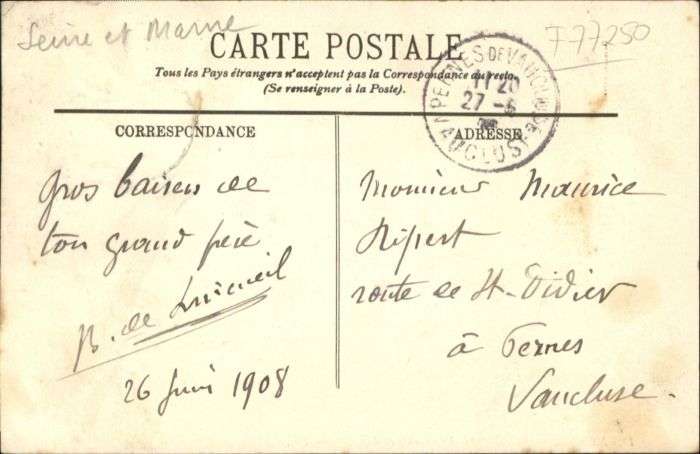 Seine et Marne
F77250
CARTE POSTALE
Tous les Pays étrangers n'acceptent pas la Correspondance au recto.
(Se renseigner à la Poste).
PERNES DE VAUCLUSE
11 20
27 - 6
VAUCLUSE
CORRESPONDANCE
Gros baisers de
ton grand père
B. de
26 Juin 1908
ADRESSE
Monsieur Maurice
Ripert
route de St-Didier
à Pernes
Vaucluse.